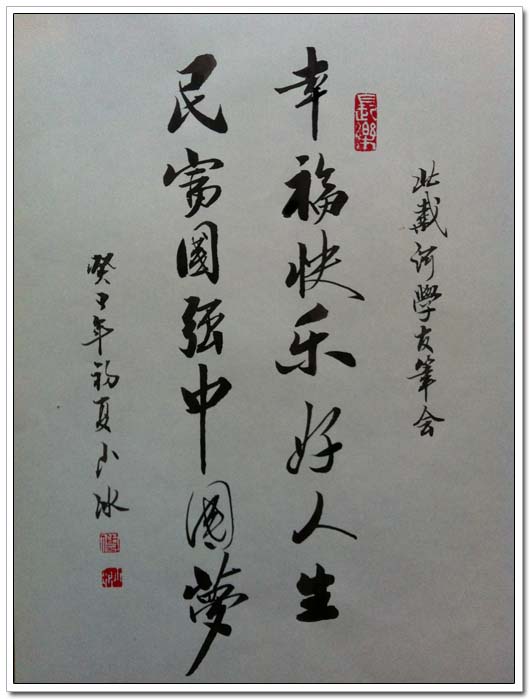 北戴河學友筆会
長樂
幸福快乐好人生
民富國强中國夢
癸巳年初夏冰